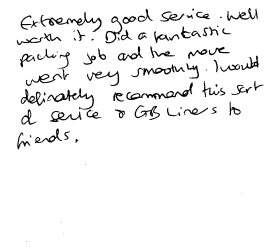 Extremely good service. Well
worth it. Did a fantastic
packing job and the move
went very smoothly. I would
definately recommend this sort
of service & GB Liners to
friends.